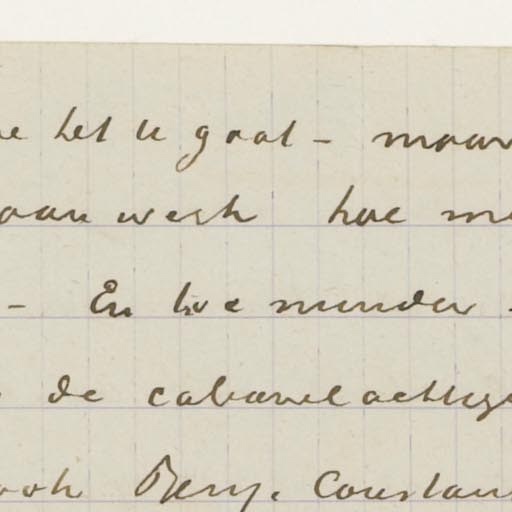 e het U gaat – maar
aan werk hoe me
– En hoe minder
de cabaretachtige
ook Benj. Constan